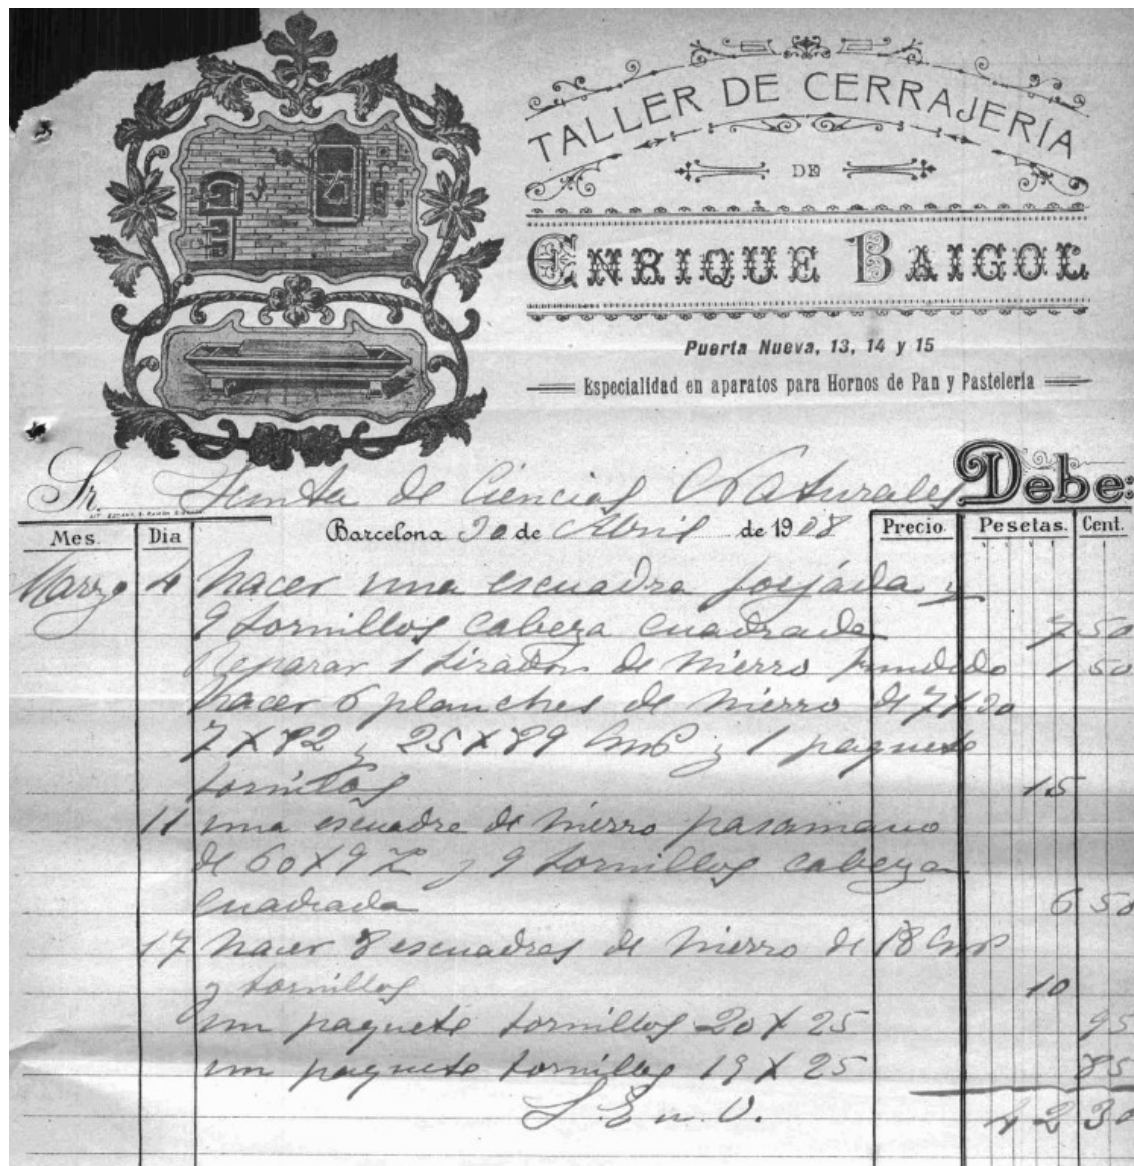 TALLER DE CERRAJERÍA
DE
ENRIQUE BAIGOL
Puerta Nueva, 13, 14 y 15
Especialidad en aparatos para Hornos de Pan y Pastelería
Debe:
Sr. Junta de Ciencias Naturales
Mes. Dia Barcelona 30 de Abril de 1908 Precio. Pesetas. Cent.
Marzo 4 hacer una escuadra forjada y
9 tornillos cabeza cuadrada 7 50
Reparar 1 tirador de hierro fundido 1 50
hacer 6 planches de hierro de 7 X 20
7 X 82 y 25 X 89 y 1 paquete
tornillos 15
11 una escuadre de hierro pasamano
de 60 X 9 y 9 tornillos cabeza
cuadrada 6 50
17 hacer 8 escuadres de hierro de 18
y tornillos 10
un paquete tornillos 20 X 25 95
un paquete tornillos 19 X 25 85
S. E. u O. 42 30